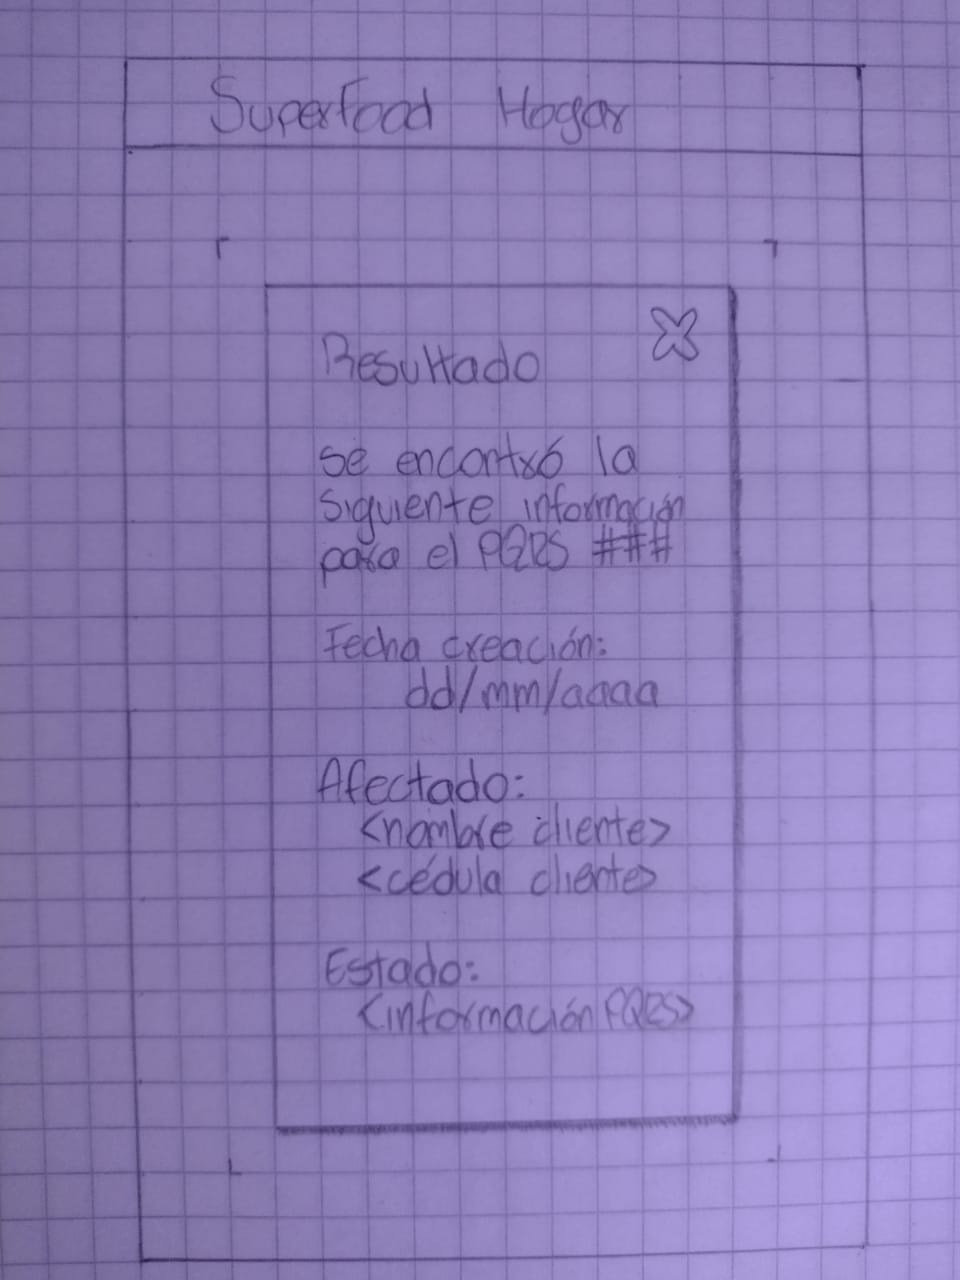 Superfood Hogar
Resultado
se encontró la
siguiente información
para el PQRS ###
Fecha creación:
dd/mm/aaaa
Afectado:
<nombre cliente>
<cédula cliente>
Estado:
<información PQRS>